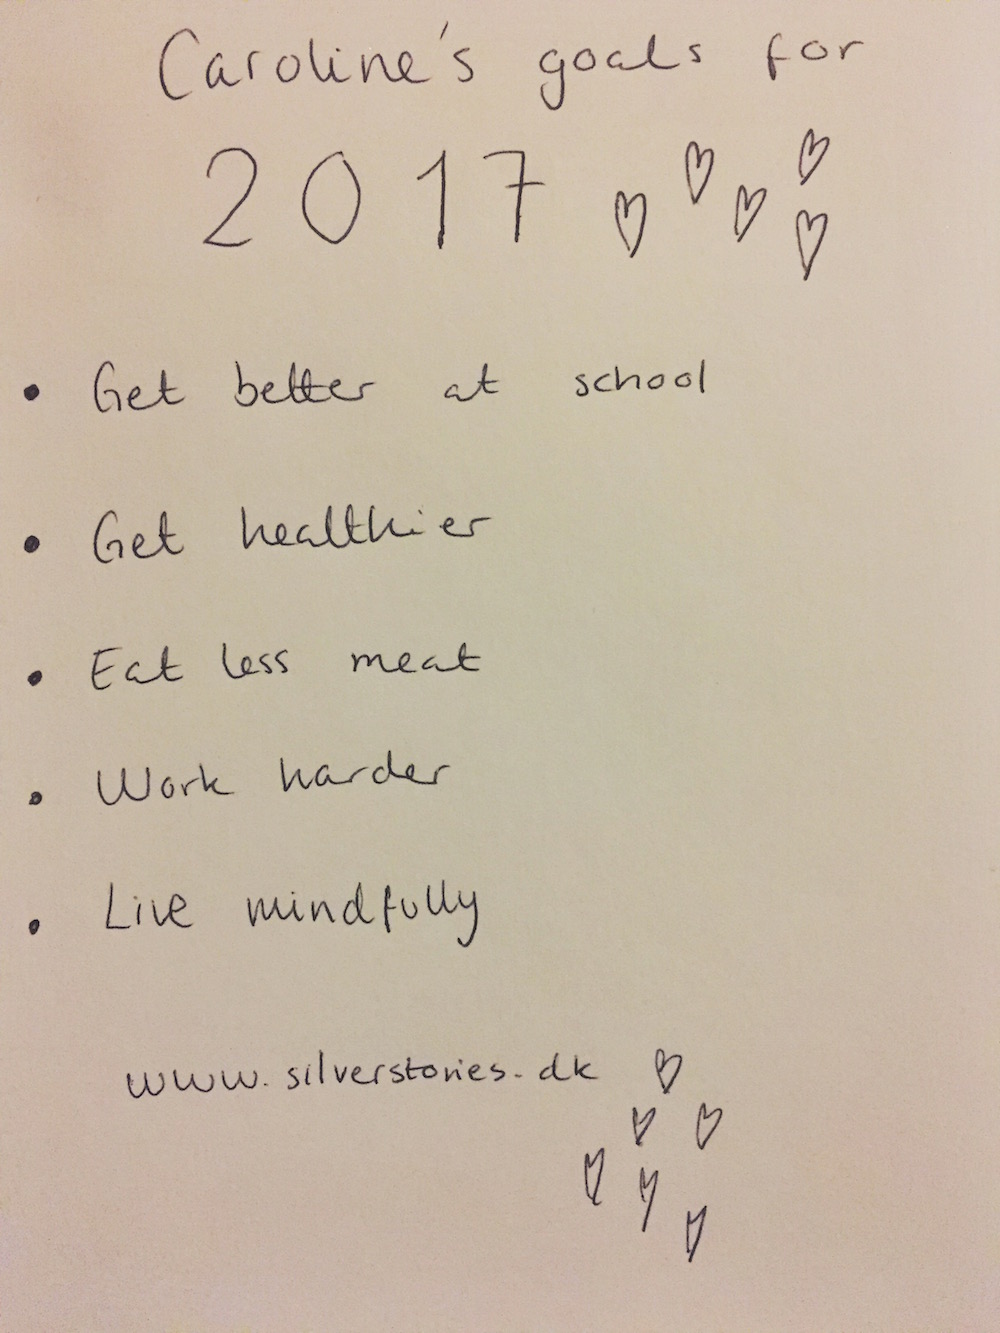 Caroline's goals for
2017
• Get better at school
• Get healthier
• Eat less meat
• Work harder
• Live mindfully
www.silverstories.dk